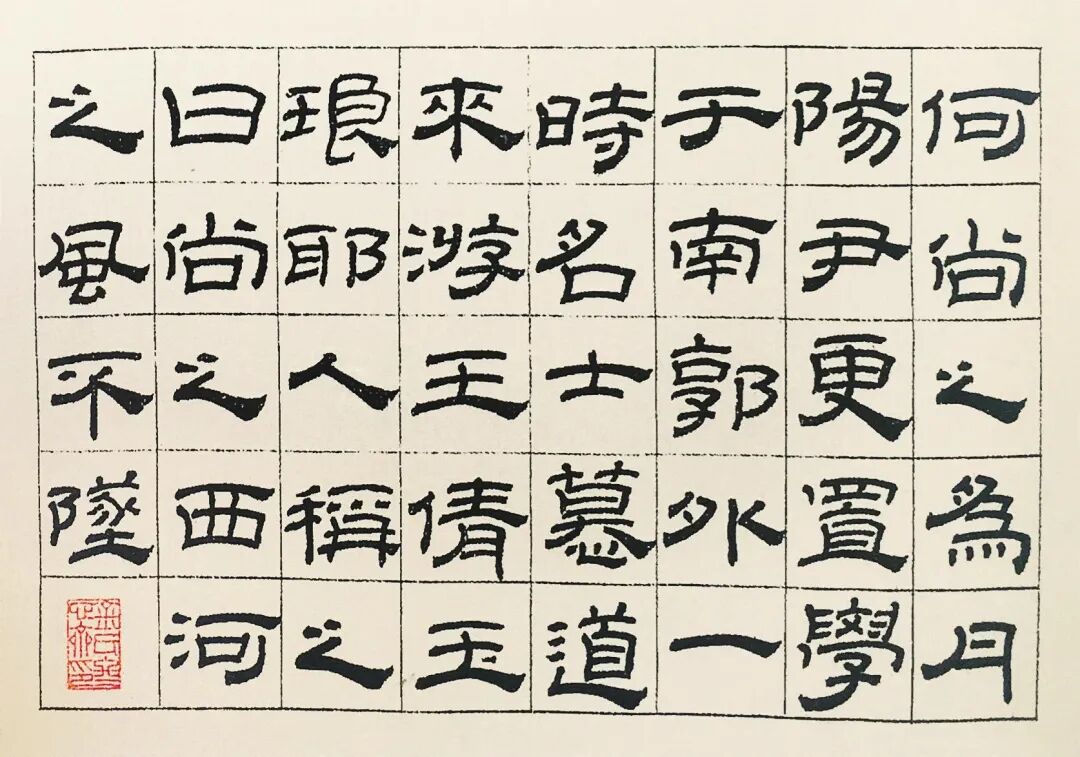 何尚之為丹
陽尹更置學
于南郭外一
時名士慕道
來游王倩玉
琅耶人稱之
曰尚之西河
之風不墜